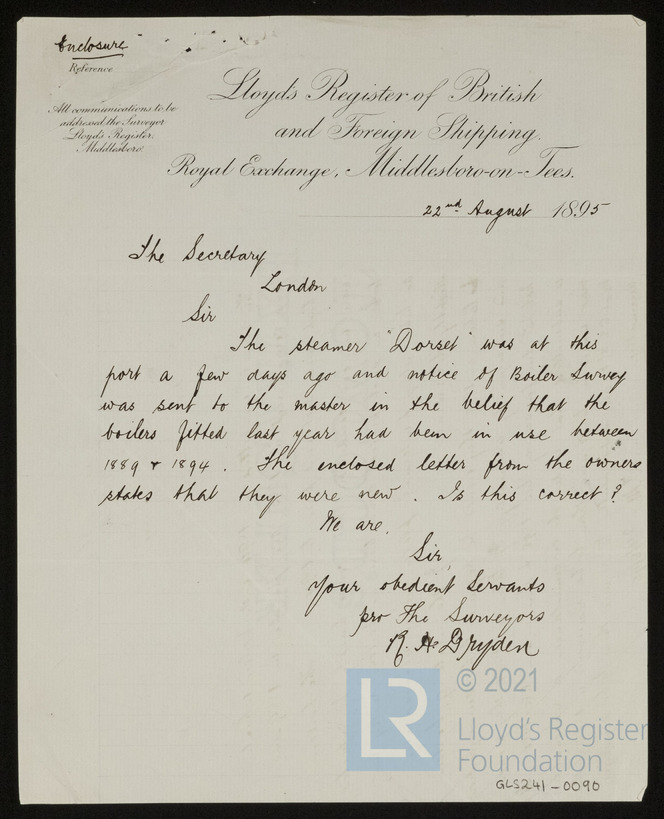 Enclosure
Reference
All communications to be
addressed the Surveyor
Lloyd's Register,
Middlesboro'.
Lloyd's Register of British
and Foreign Shipping.
Royal Exchange, Middlesboro-on-Tees.
22nd August 1895
The Secretary
London
Sir
The steamer "Dorset" was at this
port a few days ago and notice of Boiler Survey
was sent to the master in the belief that the
boilers fitted last year had been in use between
1889 & 1894. The enclosed letter from the owners
states that they were new. Is this correct?
We are,
Sir,
Your obedient Servants
pro The Surveyors
R. H. Dryden
LR
© 2021
Lloyd's Register
Foundation
GLS241-0090